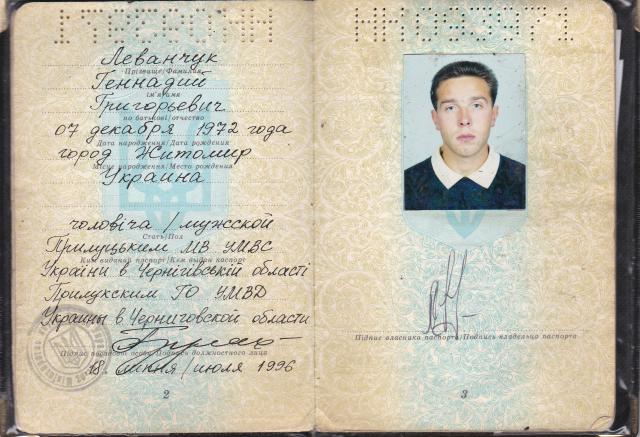 Леванчук
Прізвище/Фамилия
Геннадий
ім'я/имя
Григорьевич
по батькові/отчество
07 декабря 1972 года
Дата народження/Дата рождения
город Житомир
Місце народження/Место рождения
Украина
чоловіча/мужской
Стать/Пол
Прилуцьким МВ УМВС
Ким виданий паспорт/Кем выдан паспорт
України в Чернігівській області
Прилукским ГО УМВД
Украины в Черниговской области
Підпис посадової особи/Подпись должностного лица
18. июля 1996
2
Підпис власника паспорта/Подпись владельца паспорта
3